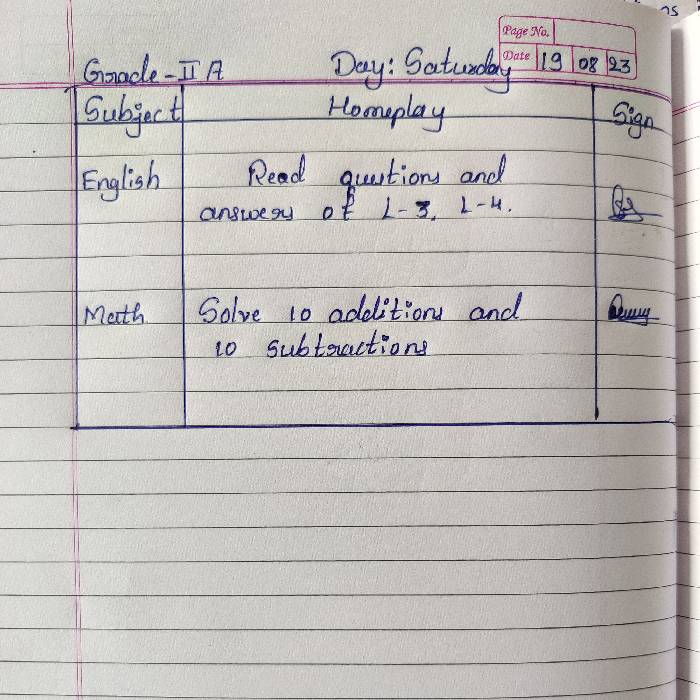 Page No.
Grade - II A Day: Saturday Date 19 08 23
Subject Homeplay Sign
English Read questions and
answers of L-3, L-4.
Math Solve 10 additions and
10 subtractions